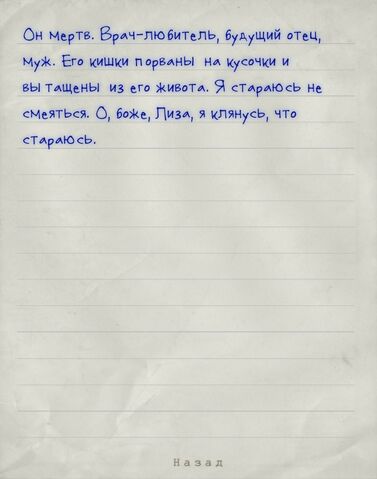 Он мертв. Врач-любитель, будущий отец,
муж. Его кишки порваны на кусочки и
вытащены из его живота. Я стараюсь не
смеяться. О, боже, Лиза, я клянусь, что
стараюсь.
Назад